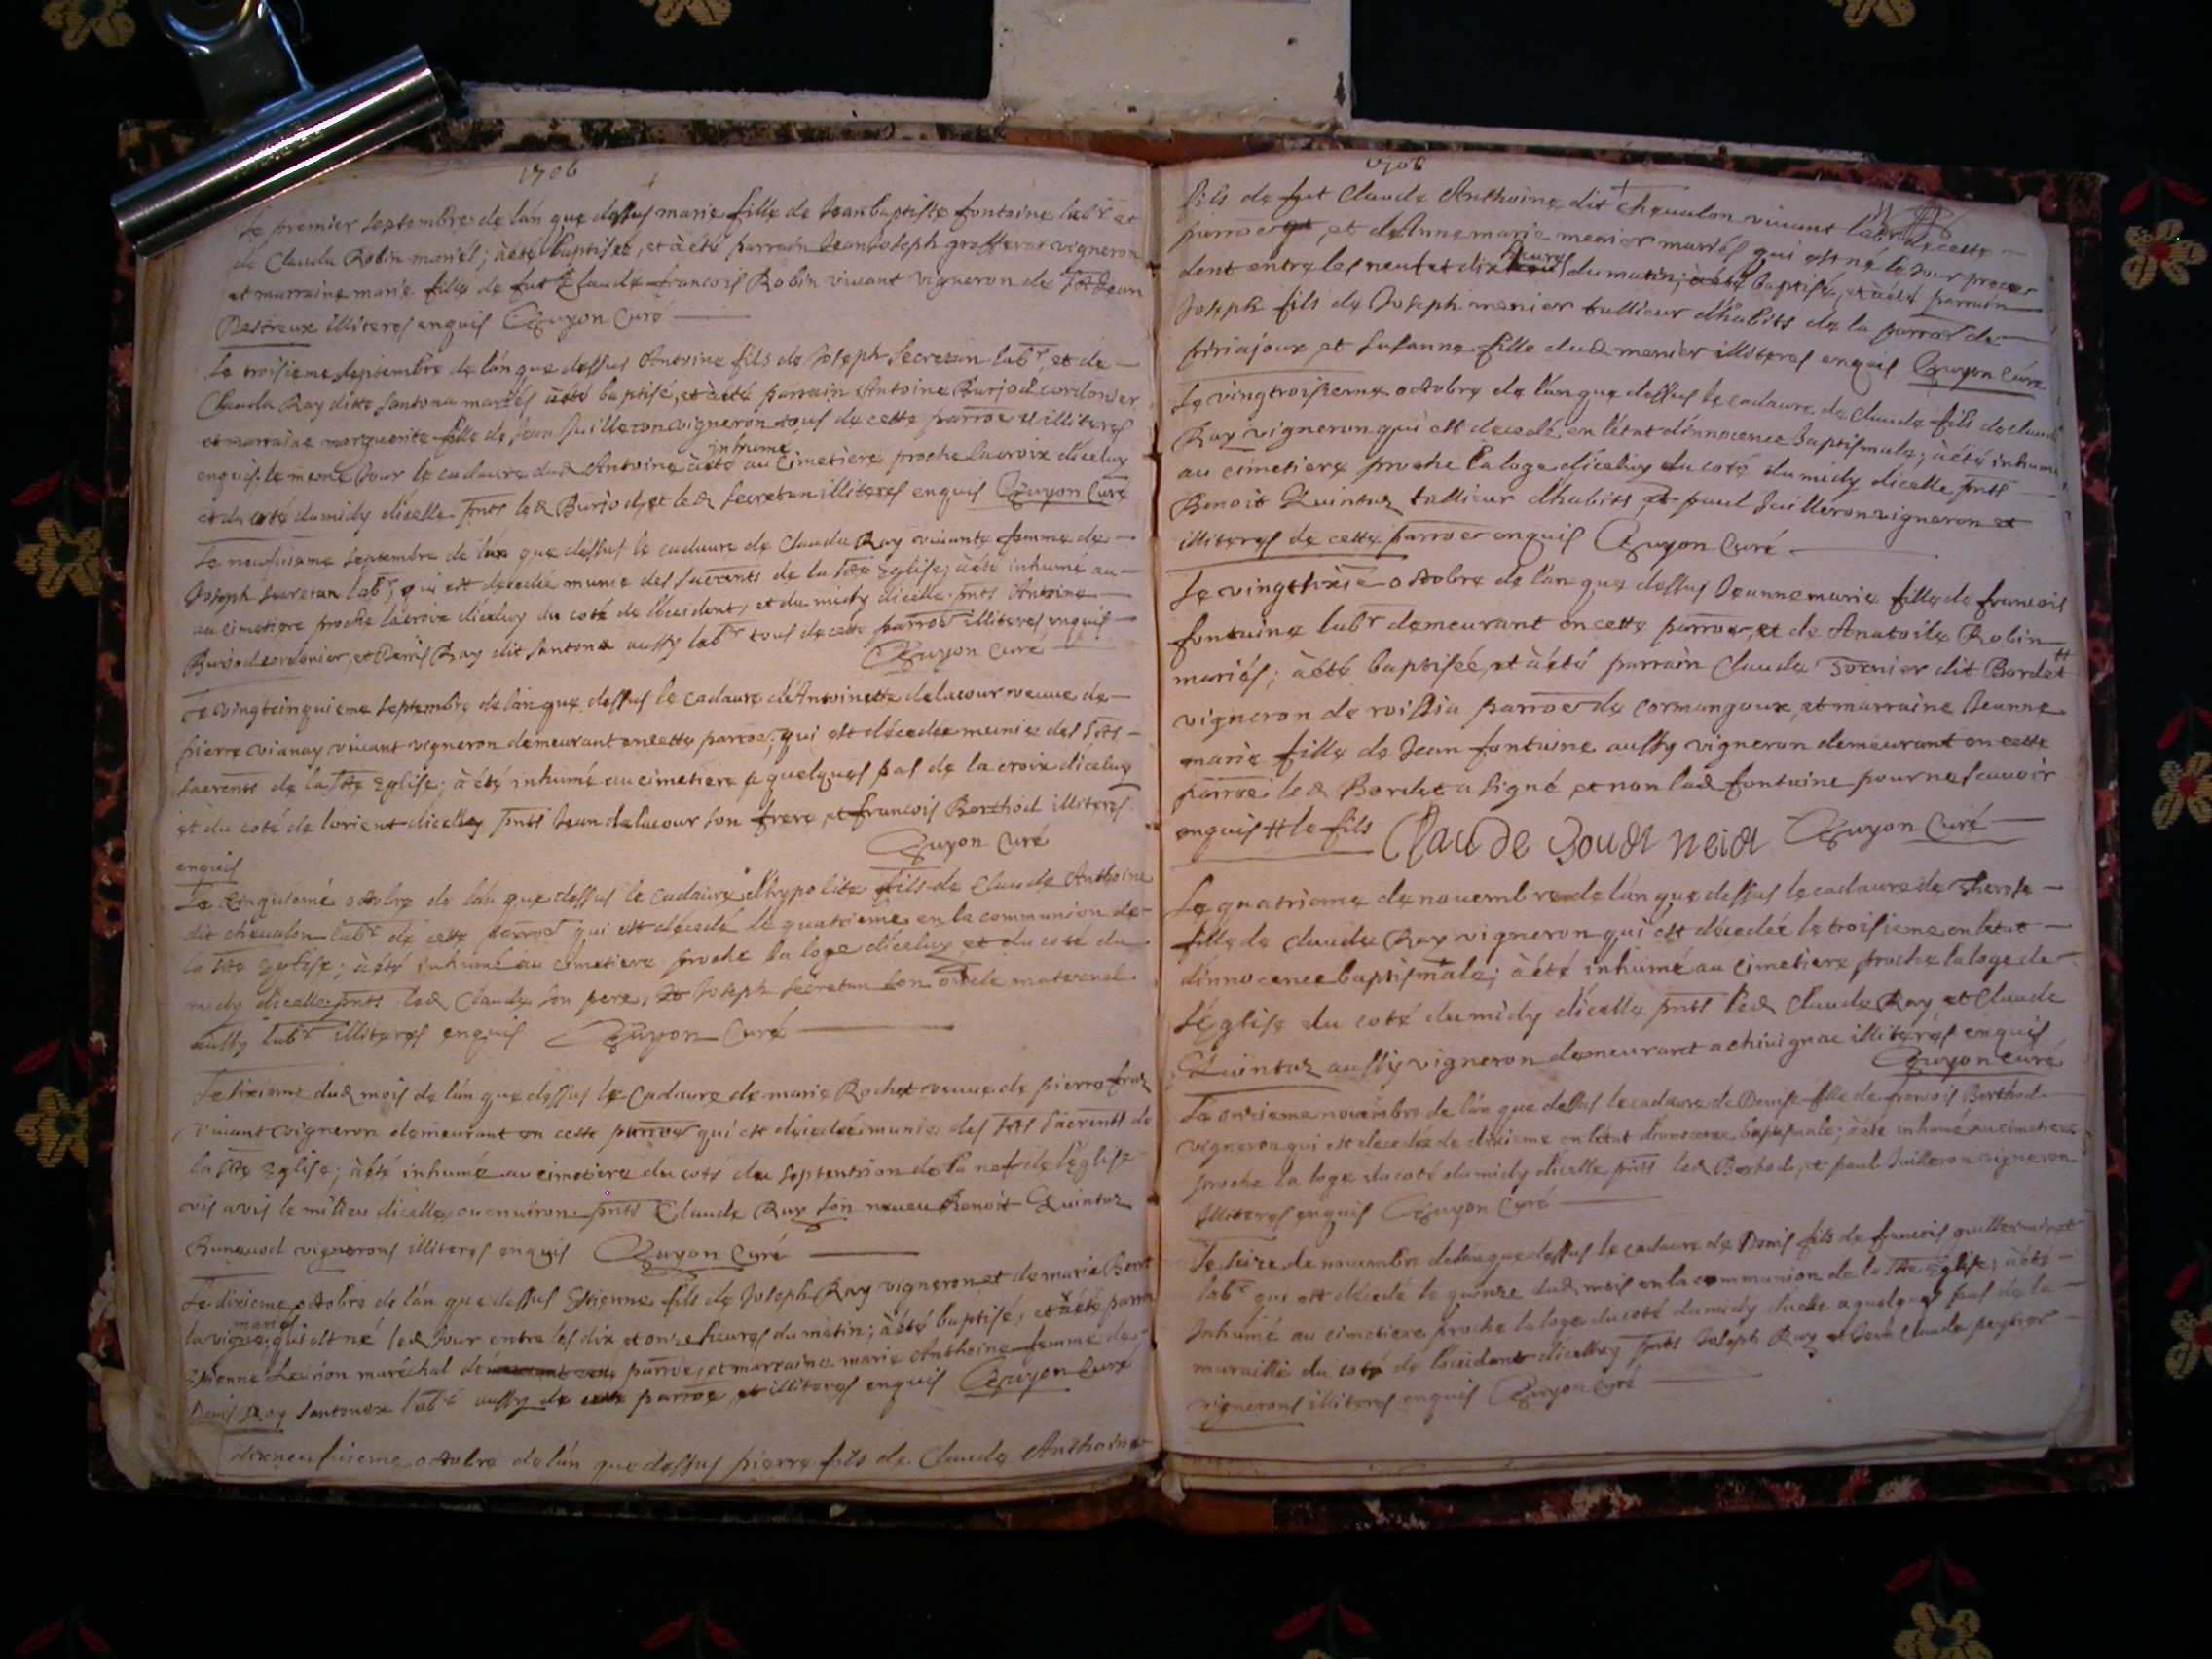 1706
Le premier septembre de lán que dessus marie fille de Jean baptiste fontaine labr et
de Clauda Robin mariés; à été baptisée, et à été parrain Jean Joseph vigneron
et marraine marie fille de fut Claude francois Robin vivant vigneron de St Jean
Destreux illiteres enquis Guyon Curé
Le troisieme septembre de lán que dessus Antoine fils de Joseph Secretan labr, et de
Clauda Ray ditte santona mariés à été baptisé, et à été parrain Antoine Buriod cordonier
et marraine marguerite fille de Jean Juilleron vigneron tous de cette parroe et illiteres
enquis. le meme Jour le cadaure dud Antoine à été inhumé au Cimetiere proche la croix diceluy
et du coté du midy dicelle pnts led Buriod, et led Secretan illiteres enquis Guyon Curé
Le neufuieme septembre de lán que dessus le cadaure de Clauda Ray viuante femme de
Joseph Secretan labr, qui est decedée munie des sacrents de la Ste Eglise; à été inhumé au
au cimetiere proche la croix diceluy du coté de loccident, et du midy dicelle pnts Antoine
Buriod cordonier, et Denis Ray dit santona aussy labr tous de cette parroe illiteres enquis
Guyon Curé
Le vingtcinquieme septembre de lán que dessus le cadaure dAntoinette delacour veuue de
pierre vianay viuant vigneron demeurant en cette parroe; qui est décedée munie des Sts
sacrents de la Ste Eglise; à été inhumé au cimetiere a quelques pas de la croix diceluy
et du coté de lorient dicelle pnts Jean delacour son frere, et francois Berthod illiteres
Guyon Curé
enquis
Le cinquiemé octobre de lán que dessus le cadaure dhypolite fils de Claude Anthoine
dit cheualon labr de cette parroe qui est décedé le quatrieme en la communion de
la Ste Eglise; à été inhumé au cimetiere proche la loge dicelux et du coté du
midy dicelle pnts led Claude son pere, et Joseph Secretan son oncle maternel
aussy labr illiteres enquis Guyon Curé
Le sixieme dud mois de lán que dessus le Cadaure de marie Rochet veuue de pierre
viuant vigneron demeurant en cette parroe qui est décedée munie des Sts sacrents de
la Ste Eglise; à été inhumé au cimetiere du coté du septentrion de la nef de léglise
vis a vis le milieu dicelle, ou enuiron pnts Claude Ray son neueu Benoit Quintaz
vignerons illiteres enquis Guyon Curé
Le dixieme octobre de lán que dessus Estienne fils de Joseph Ray vigneron et de marie
la vigne mariés qui est né led Jour entre les dix et onze heures du matin; à été baptisé, et à été parrain
Estienne maréchal de parroe, et marraine marie Anthoine femme de
Denis Ray santona labr aussy de cette parroe, et illiteres enquis Guyon Curé
dixneufuieme octobre de lán que dessus pierre fils de Claude Anthoine
1706
fils de fut Claude Anthoine dit cheualon viuant labr de cette
parroe, et de Anne marie menier mariés qui est né le Jour prece
dent entre les neuf et dix heures du matin; à été baptisé, et à été parrain
Joseph fils de Joseph menier tallieur dhabits de la parroe de
piriajoux, et susanne fille dud menier illiteres enquis Guyon Curé
Le vingtroisieme octobre de lán que dessus le cadaure de Claude fils de claude
Ray vigneron qui est decedé en létat dinnocence baptismale; à été inhumé
au cimetiere proche la loge diceluy du coté du midy dicelle pnts
Benoit Quintaz tallieur dhabits, et paul Juilleron vigneron et
illiteres de cette parroe enquis Guyon Curé
Le vingtsixie octobre de lán que dessus Jeanne marie fille de francois
fontaine labr demeurant en cette parroe, et de Anatoile Robin
mariés; à été baptisée, et à été parrain Claude dit Bordet #
vigneron de roissia parroe de cormangoux, et marraine Jeanne
marie fille de Jean fontaine aussy vigneron demeurant en cette
parroe led Bordet a signé, et non lad fontaine pour ne scauoir
enquis # le fils Claude Guyon Curé
Le quatrieme de nouembre de lán que dessus le cadaure de Therese
fille de claude Ray vigneron qui est décedée le troisieme en létat
dinnocence baptismale; à été inhumé au cimetiere proche la loge de
léglise du coté du midy dicelle pnts led Claude Ray et Claude
Quintaz aussy vigneron demeurant a chiuignac illiteres enquis
Guyon curé
Le onzieme nouembre de lán que dessus le cadaure de Denise fille de francois Berthod
vigneron qui est decedée le dixieme en létat dinnocence baptismale; à été inhumé au cimetiere
proche la loge du coté du midy dicelle pnts led Berthod, et paul Juilleron vigneron
illiteres enquis Guyon Curé
Le seize de nouembre de lán que dessus le cadaure de Denis fils de francois
labr qui est décedé le quinze dud mois en la communion de la Ste Eglise; à été
Inhumé au cimetiere proche la loge du coté du midy dicelle a quelques pas de la
muraille du coté de loccident dicelle pnts Joseph Ray et Jean Claude
vignerons illiteres enquis Guyon Curé